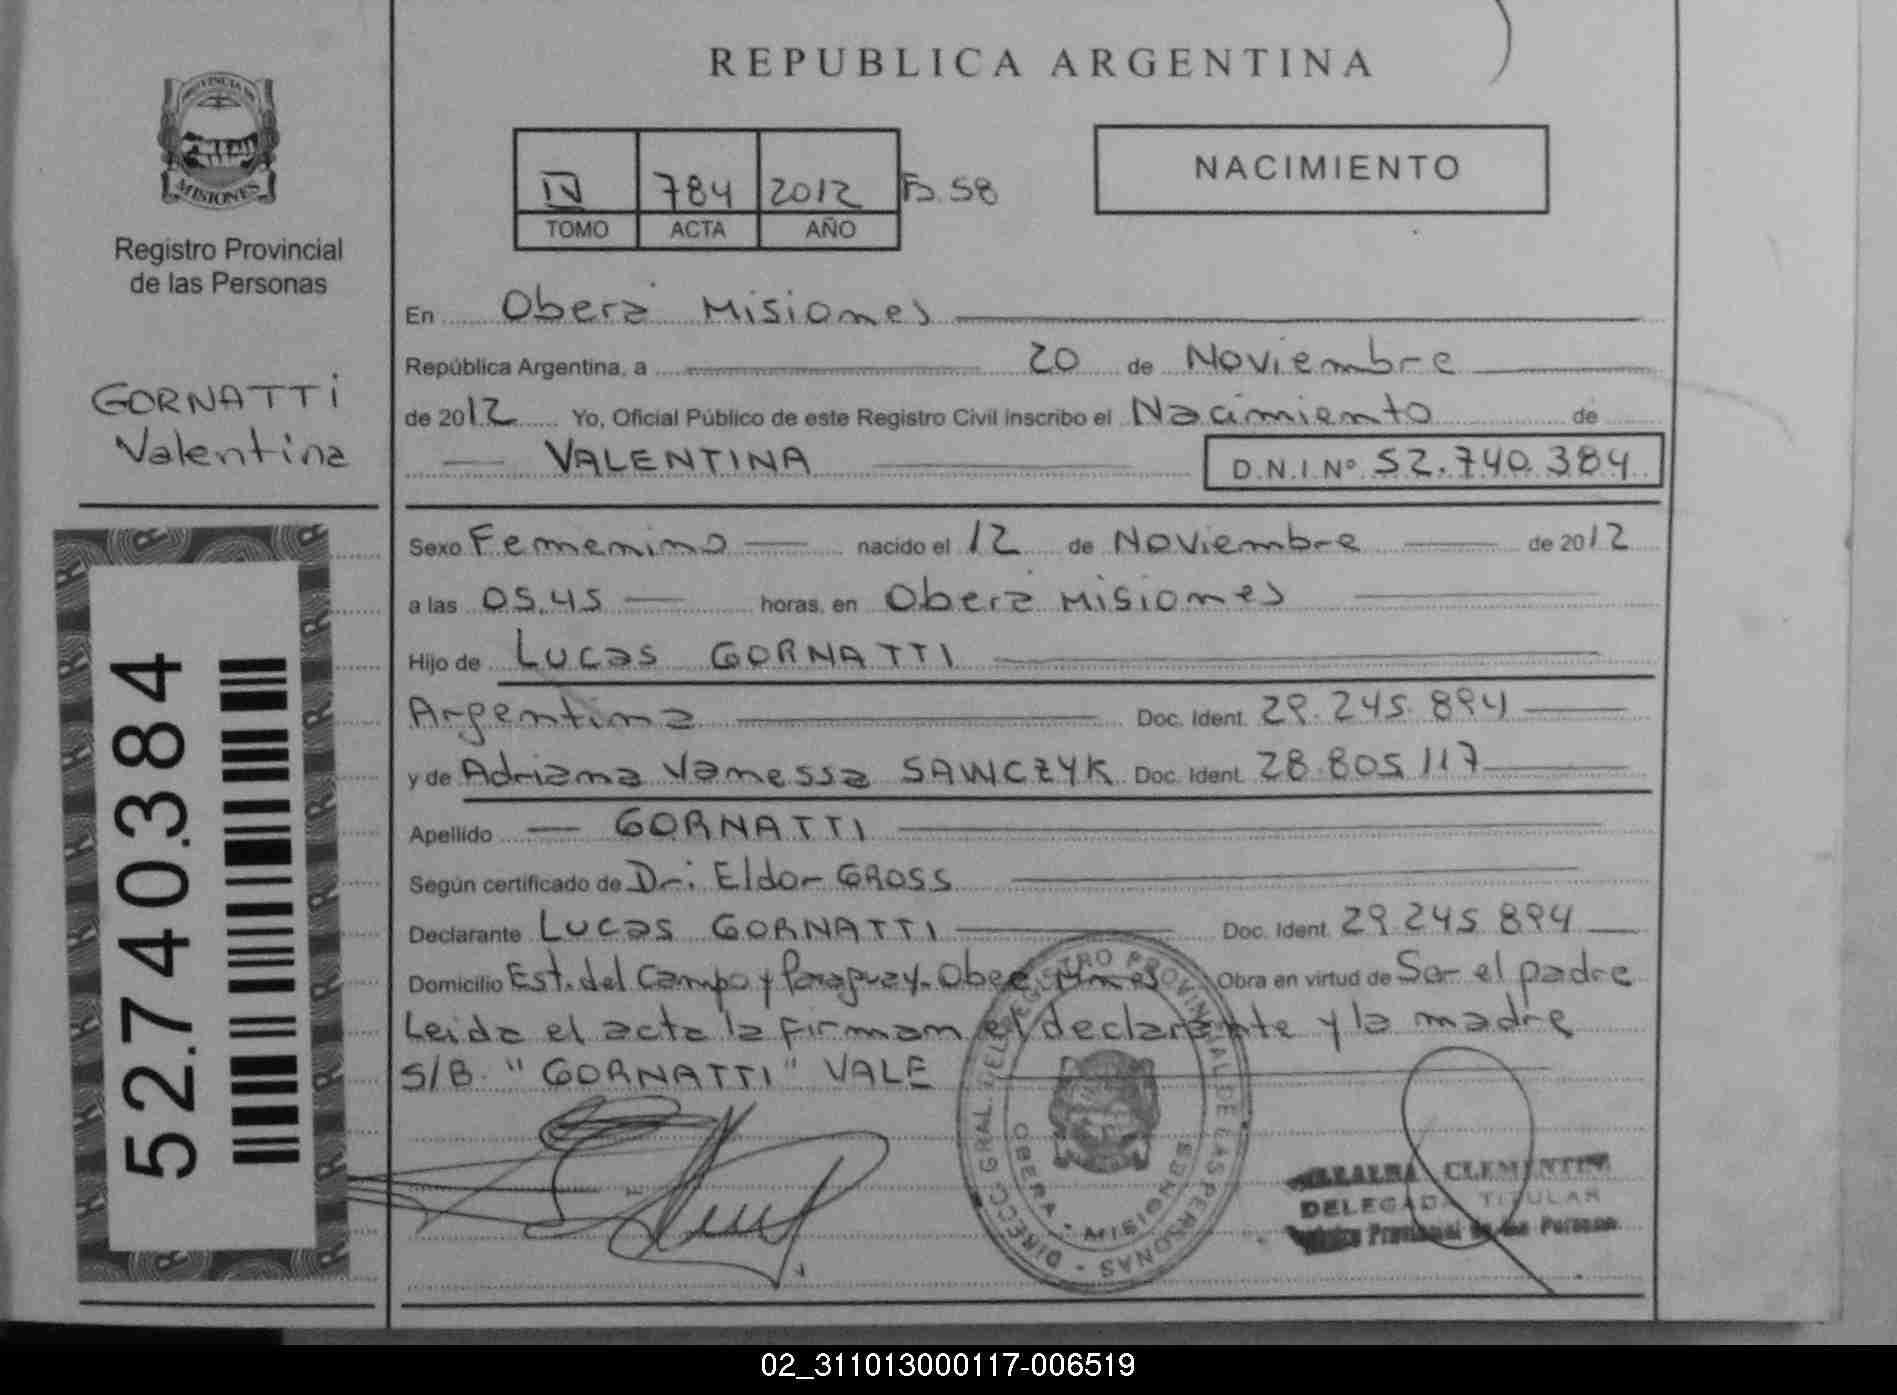 REPUBLICA ARGENTINA
PROVINCIA DE
MISIONES
Registro Provincial
de las Personas
IV 784 2012 Fº.58
TOMO ACTA AÑO
NACIMIENTO
GORNATTI
Valentina
En Oberá Misiones
República Argentina, a 20 de Noviembre
de 2012 Yo, Oficial Público de este Registro Civil inscribo el Nacimiento de
VALENTINA D.N.I.Nº 52.740.384
Sexo Femenino nacido el 12 de Noviembre de 2012
a las 05.45 horas, en Oberá Misiones
Hijo de Lucas GORNATTI
Argentina Doc. Ident. 29.245.894
y de Adriana Vanessa SAWCZYK Doc. Ident. 28.805.117
Apellido GORNATTI
Según certificado de Dr: Eldor GROSS
Declarante Lucas GORNATTI Doc. Ident. 29.245.894
Domicilio Est. del Campo y Paraguay. Obera Mnes Obra en virtud de Ser el padre
Leida el acta la firman el declarante y la madre
S/B. "GORNATTI" VALE
52.740.384
DIRECC. GRAL. DEL REGISTRO PROVINCIAL DE LAS PERSONAS
OBERA - MISIONES
CLEMENTINA
DELEGADA TITULAR
Provincial de las Personas
02_311013000117-006519